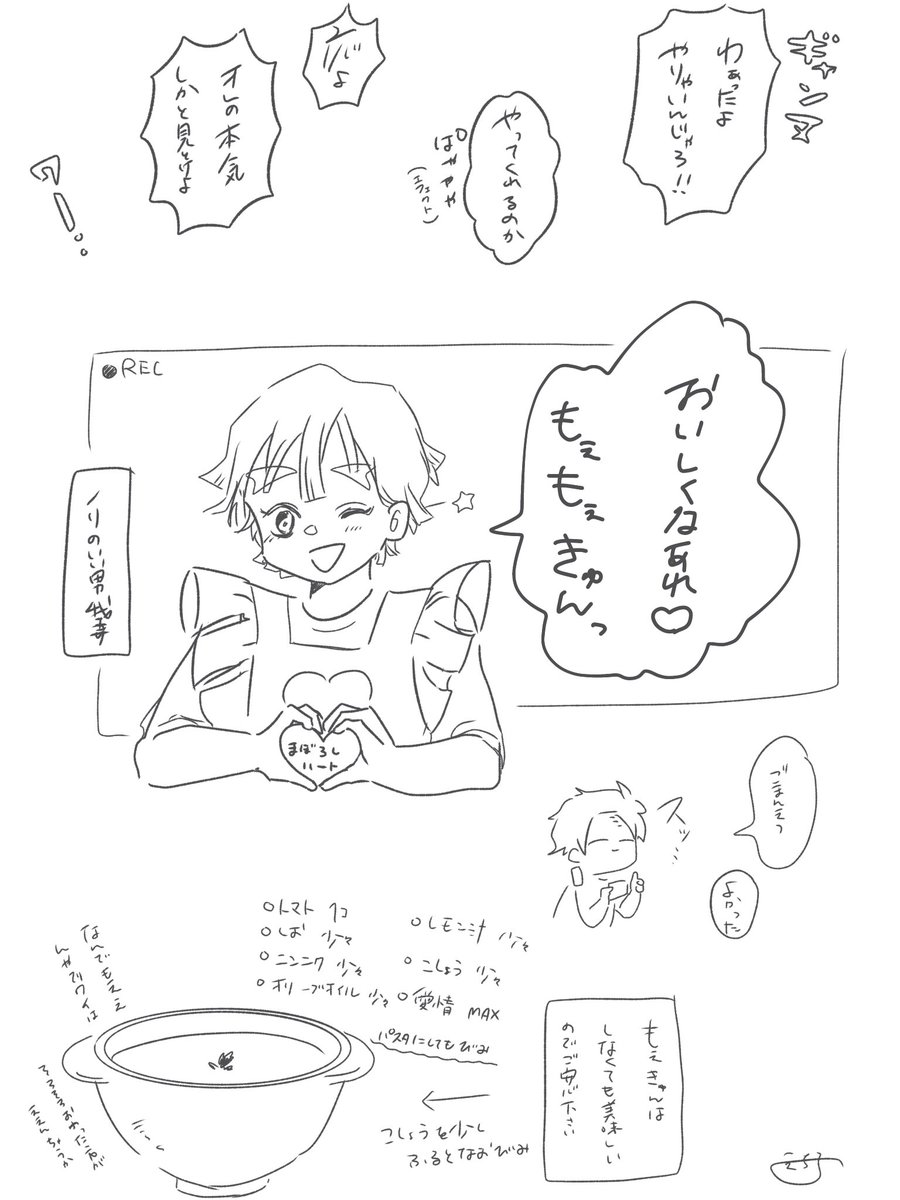 ギャンヌ
わぁったよ
やりゃいんじゃろ!!
やってくれるのか
ぱややや
(エフェクト)
オレの本気
しかと見とけよ
REC
おいしくなあれ♡
もえもえきゅんっ
ノリのいい男我妻
まぼろし
ハート
スッ…
よかった
トマト 1コ
しお 少々
ニンニク 少々
オリーブオイル 少々
レモン汁 少々
こしょう 少々
愛情 MAX
パスタにしてもびみ
こしょうを少し
ふるとなおびみ
もえきゅんは
しなくても美味しい
のでご安心下さい
なんでもええ
んやでワイは